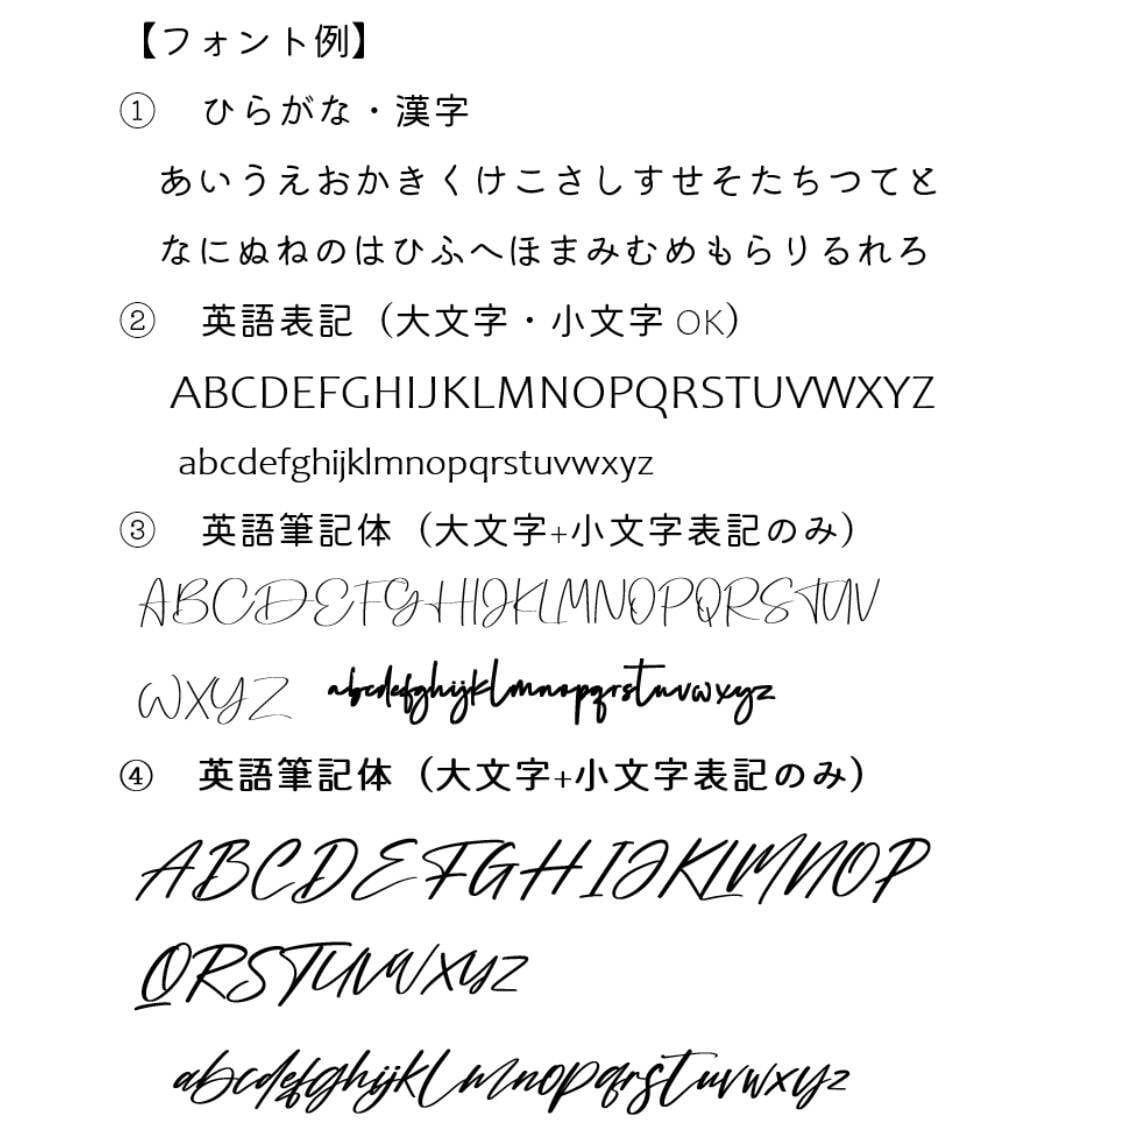 【フォント例】
① ひらがな・漢字
あいうえおかきくけこさしすせそたちつてと
なにぬねのはひふへほまみむめもらりるれろ
② 英語表記（大文字・小文字 OK）
ABCDEFGHIJKLMNOPQRSTUVWXYZ
abcdefghijklmnopqrstuvwxyz
③ 英語筆記体（大文字+小文字表記のみ）
ABCDEFGHIJKLMNOPQRSTUV
WXYZ abcdefghijklmnopqrstuvwxyz
④ 英語筆記体（大文字+小文字表記のみ）
ABCDEFGHIJKLMNOP
QRSTUVWXYZ
abcdefghijklmnopqrstuvwxyz